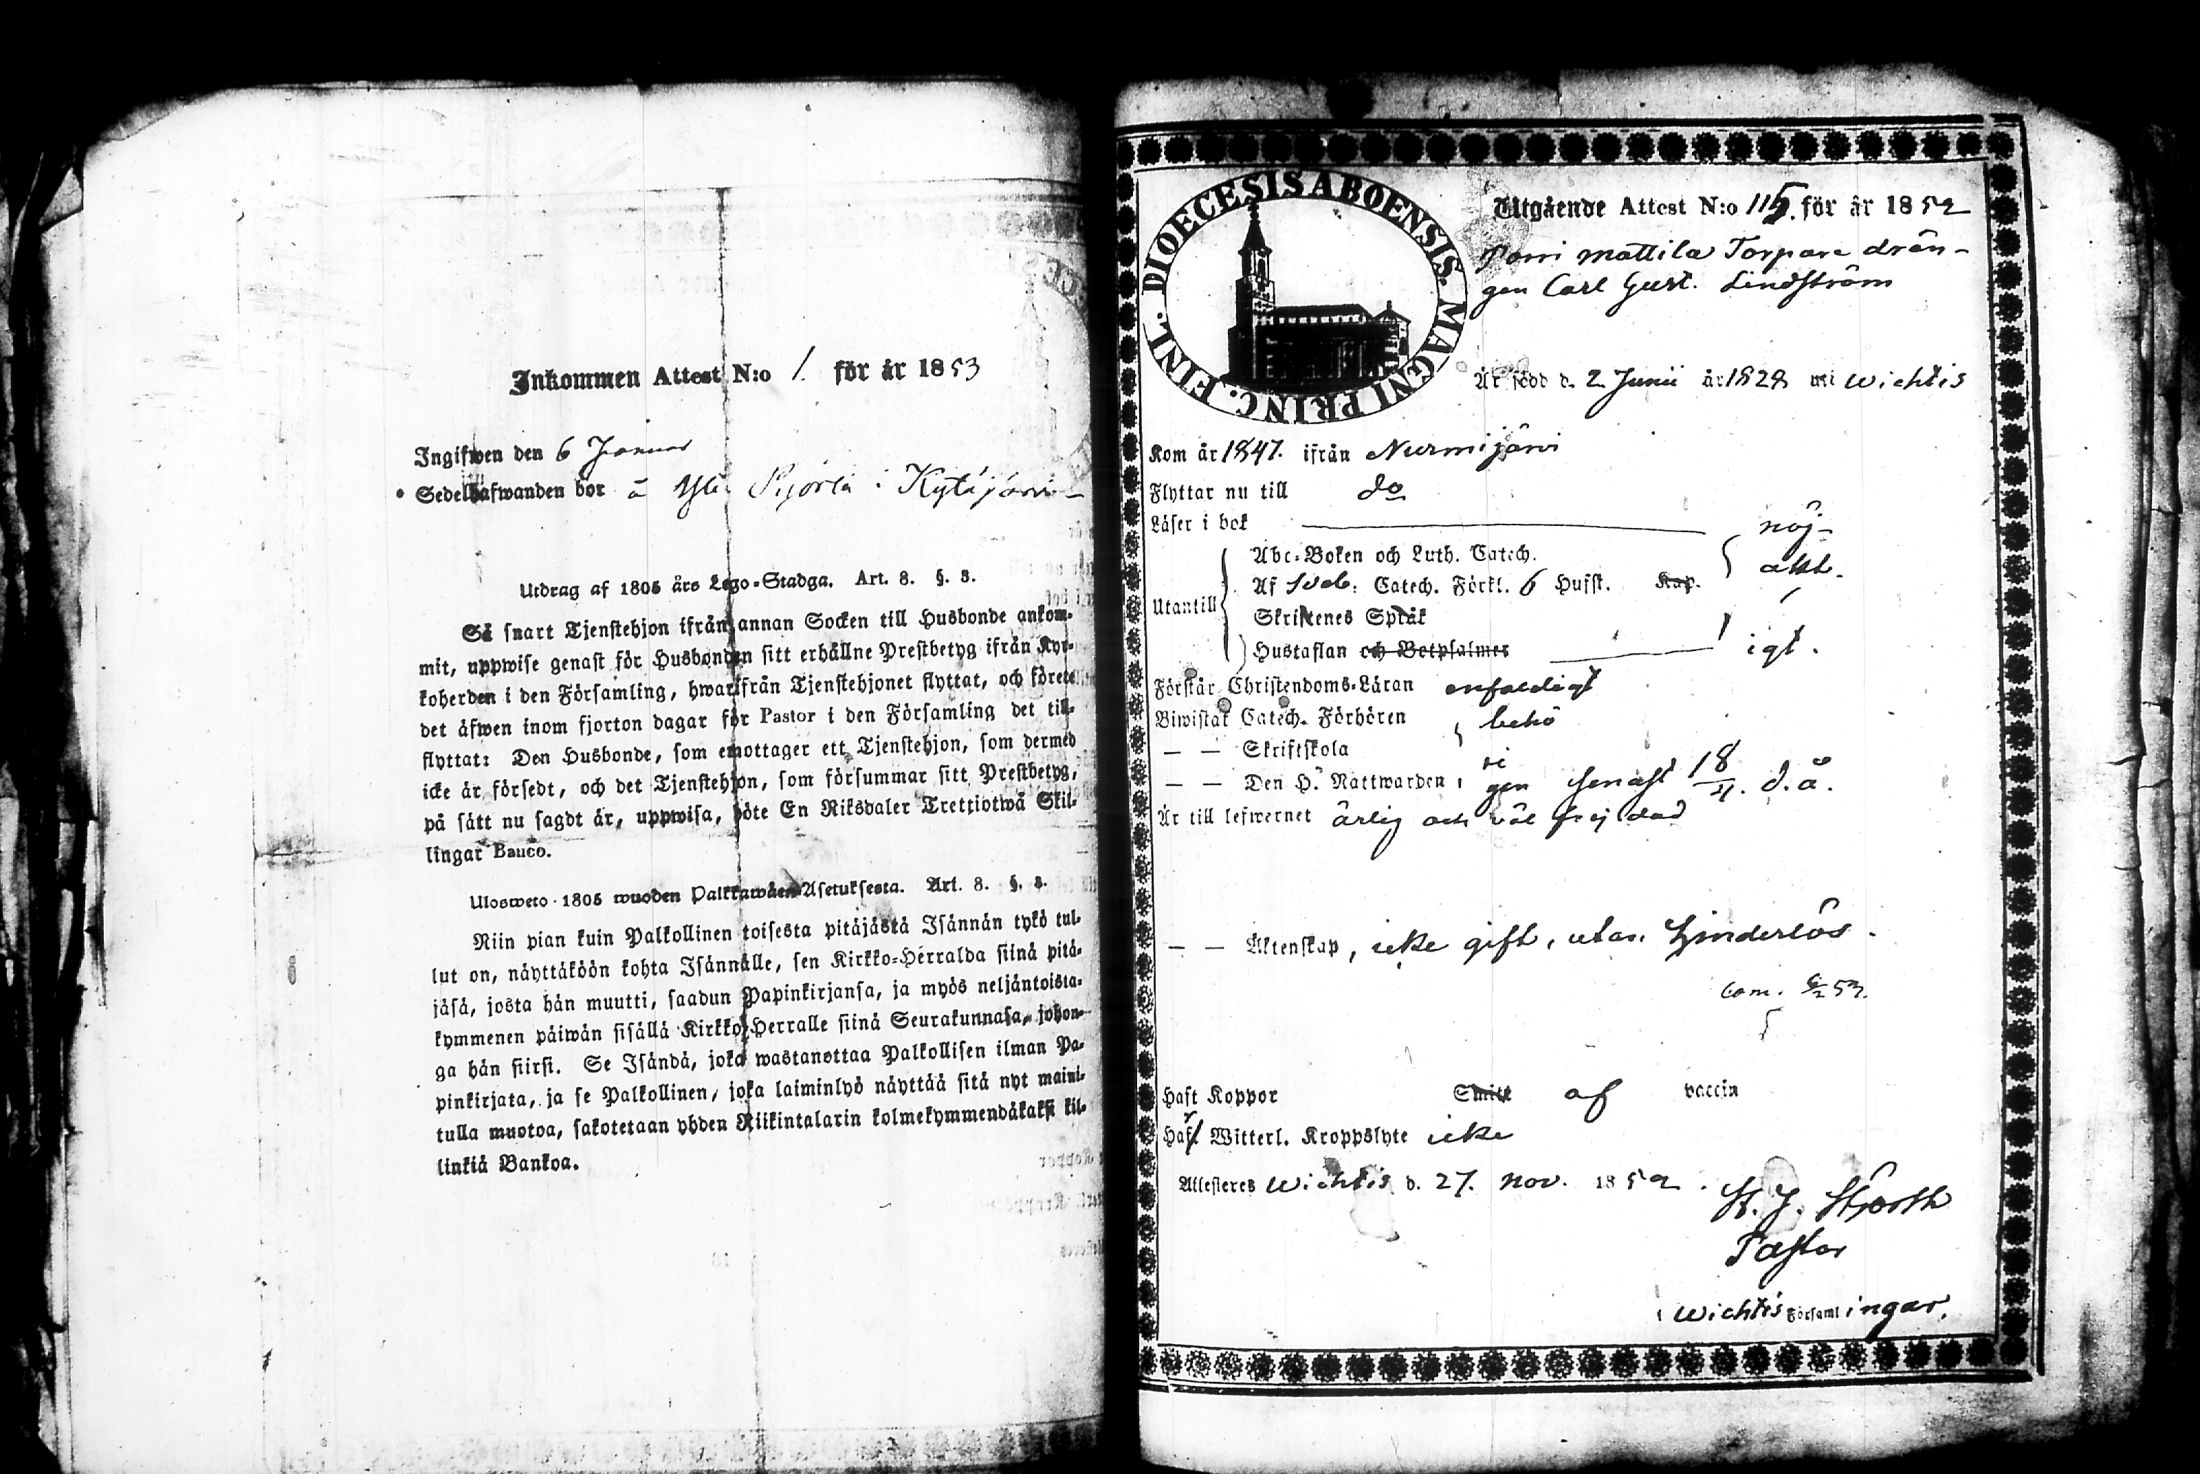 Inkommen Attest N:o 1. för år 1853
Ingifwen den 6 Januar
Sedelhafwanden bor å i Kytäjärvi
Utdrag af 1805 års Lego-Stadga. Art. 8. §. 3.
Så snart Tjenstehjon ifrån annan Socken till Husbonde ankom-
mit, uppwise genast för Husbonden sitt erhållne Prestbetyg ifrån Kyr-
koherden i den Församling, hwarifrån Tjenstehjonet flyttat, och förete
det äfwen inom fjorton dagar för Pastor i den Församling det till-
flyttat: Den Husbonde, som emottager ett Tjenstehjon, som dermed
icke är försedt, och det Tjenstehjon, som försummar sitt Prestbetyg,
på sätt nu sagdt är, uppwisa, böte En Riksdaler Trettiotwå Skil-
lingar Banco.
Ulosweto 1805 wuoden Palkkawäen Asetuksesta. Art. 8. §. 3.
Niin pian kuin Palkollinen toisesta pitäjästä Isännän tykö tul-
lut on, näyttäköön kohta Isännälle, sen Kirkko-Herralda siinä pitä-
jäsä, josta hän muutti, saadun Papinkirjansa, ja myös neljäntoista-
kymmenen päiwän sisällä Kirkko-Herralle siinä Seurakunnasa, johon-
ga hän siirsi. Se Isändä, joka wastanottaa Palkollisen ilman Pa-
pinkirjata, ja se Palkollinen, joka laiminlyö näyttää sitä nyt maini-
tulla muotoa, sakotetaan yhden Riikintalarin kolmekymmendäkaksi kil-
linkiä Bankoa.
DIOECESIS ABOENSIS. MAGNI PRINC. FINL.
Utgående Attest N:o 115. för år 1852
Mattila Torpare drän-
gen Carl Gust. Lindström
Är född d. 2 Junii år 1828 uti Wichtis
Kom år 1847. ifrån Nurmijärvi
Flyttar nu till do
Läser i bok nöj-
Abc-Boken och Luth. Catech. akt.
Utantill
Af Sveb: Catech. Förkl. 6 Hufst. Kap.
Skriftenes Språk
Hustaflan och Betpsalmer igt.
Förstår Christendoms-Läran enfaldigt
Biwistat Catech. Förhören behö
— — Skriftskola ri
— — Den H. Nattwarden, gen senast 18/4. d. å.
Är till lefwernet ärlig och väl frejdad
— — Äktenskap, icke gift, utan hinderlös.
Com. 53.
Haft Koppor Smitt af vaccin
Har Witterl. Kroppslyte icke
Attesteres Wichtis d. 27. Nov. 1852.
Pastor
i Wichtis Församlingar.